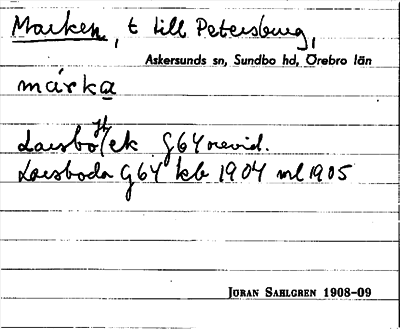 Marken, t till Petersburg,
Askersunds sn, Sundbo hd, Örebro län
márka
ek G64 orevid.
Laxboda G64 kb 1904 ml 1905
JÖRAN SAHLGREN 1908-09